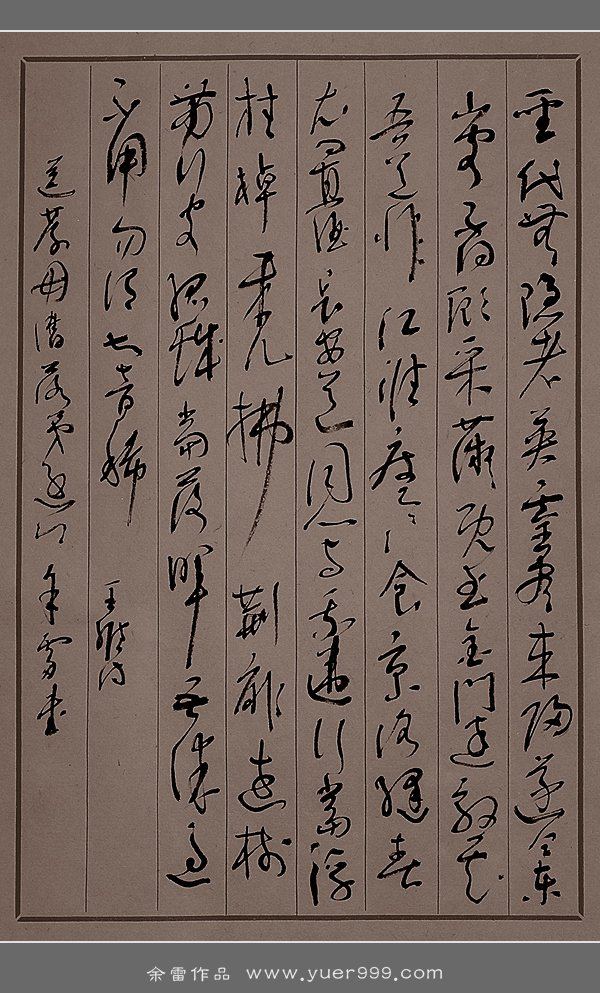 聖代無隱者英靈盡來歸遂令東
山客不得顧采薇既至金門遠孰云
吾道非江淮度寒食京洛縫春
衣置酒長安道同心与我違行當浮
桂棹未几拂荆扉遠樹
帶行客孤城當落暉吾謀適
不用勿谓知音稀 王維诗
送綦毋潛落第还乡 余雷书
余雷作品 www.yuer999.com